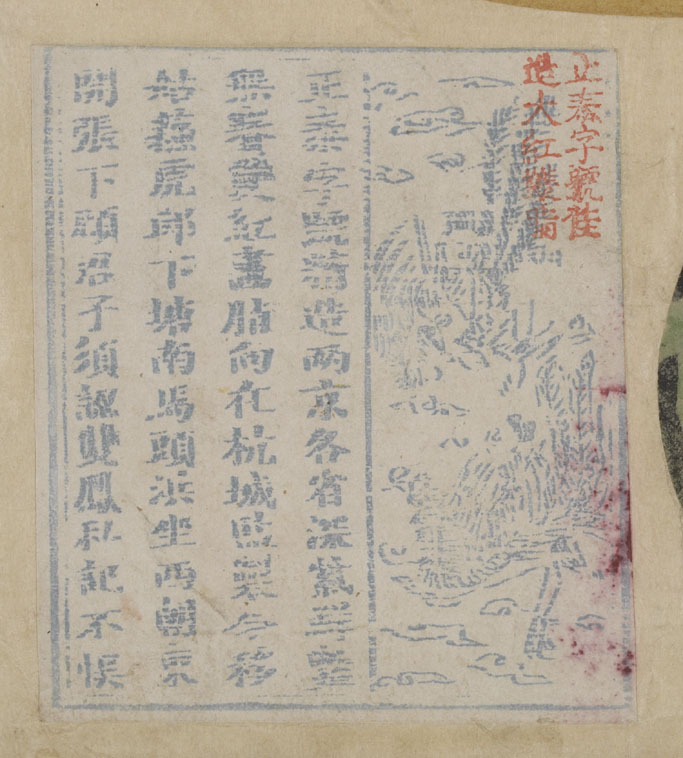 正泰字號佳
造大紅脂
正泰字號造兩京各省深紫
紅畫脂向在杭城今移
姑蘇虎邱下塘南馬頭浜坐西朝東
開張下顧君子須認雙鳳私記不悞